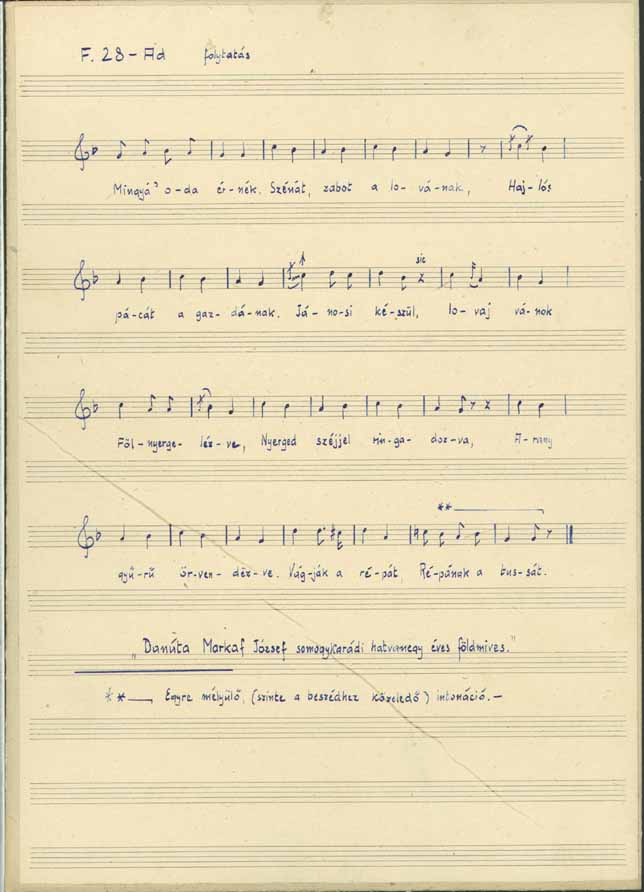 F. 28 - Ad folytatás
Mingyá' o-da ér-nék. Szénát, zabot a lo-vá-nak, Haj-lós
sic
pá-cát a gaz-dá-nak. Já-no-si ké-szül, lo-vaj vá-nok
Föl-nyerge-léz-ve, Nyerged széjjel rin-ga-doz-va, A-rany
**
gyű-rű ör-ven-dëz-ve. Vág-ják a ré-pát, Ré-pának a tus-sát.
„Danúta Markaf József somogykarádi hatvanegy éves földmíves."
** Egyre mélyülő, (szinte a beszédhez közeledő) intonáció.-